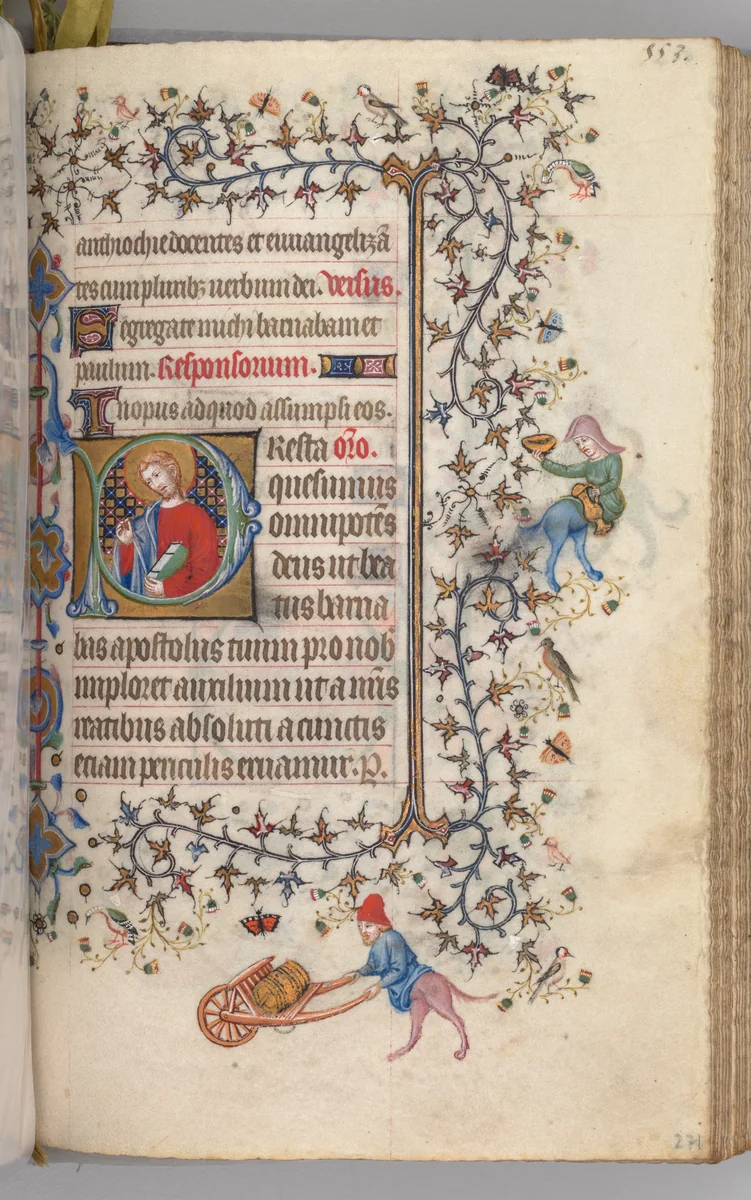 553.
anthiochie docentes et euuangelizā
tes cum pluribꝫ uerbum dei. Versus.
Segregate michi barnabam et
paulum. Responsorium.
In opus ad quod assumpsi eos.
Presta oro.
quesumus
omnipotēs
deus ut bea
tus barna
bas apostolus tuum pro nob
imploret auxilium ut a nr̄is
reatibus absoluti a cunctis
etiam periculis eruamur. P.
271